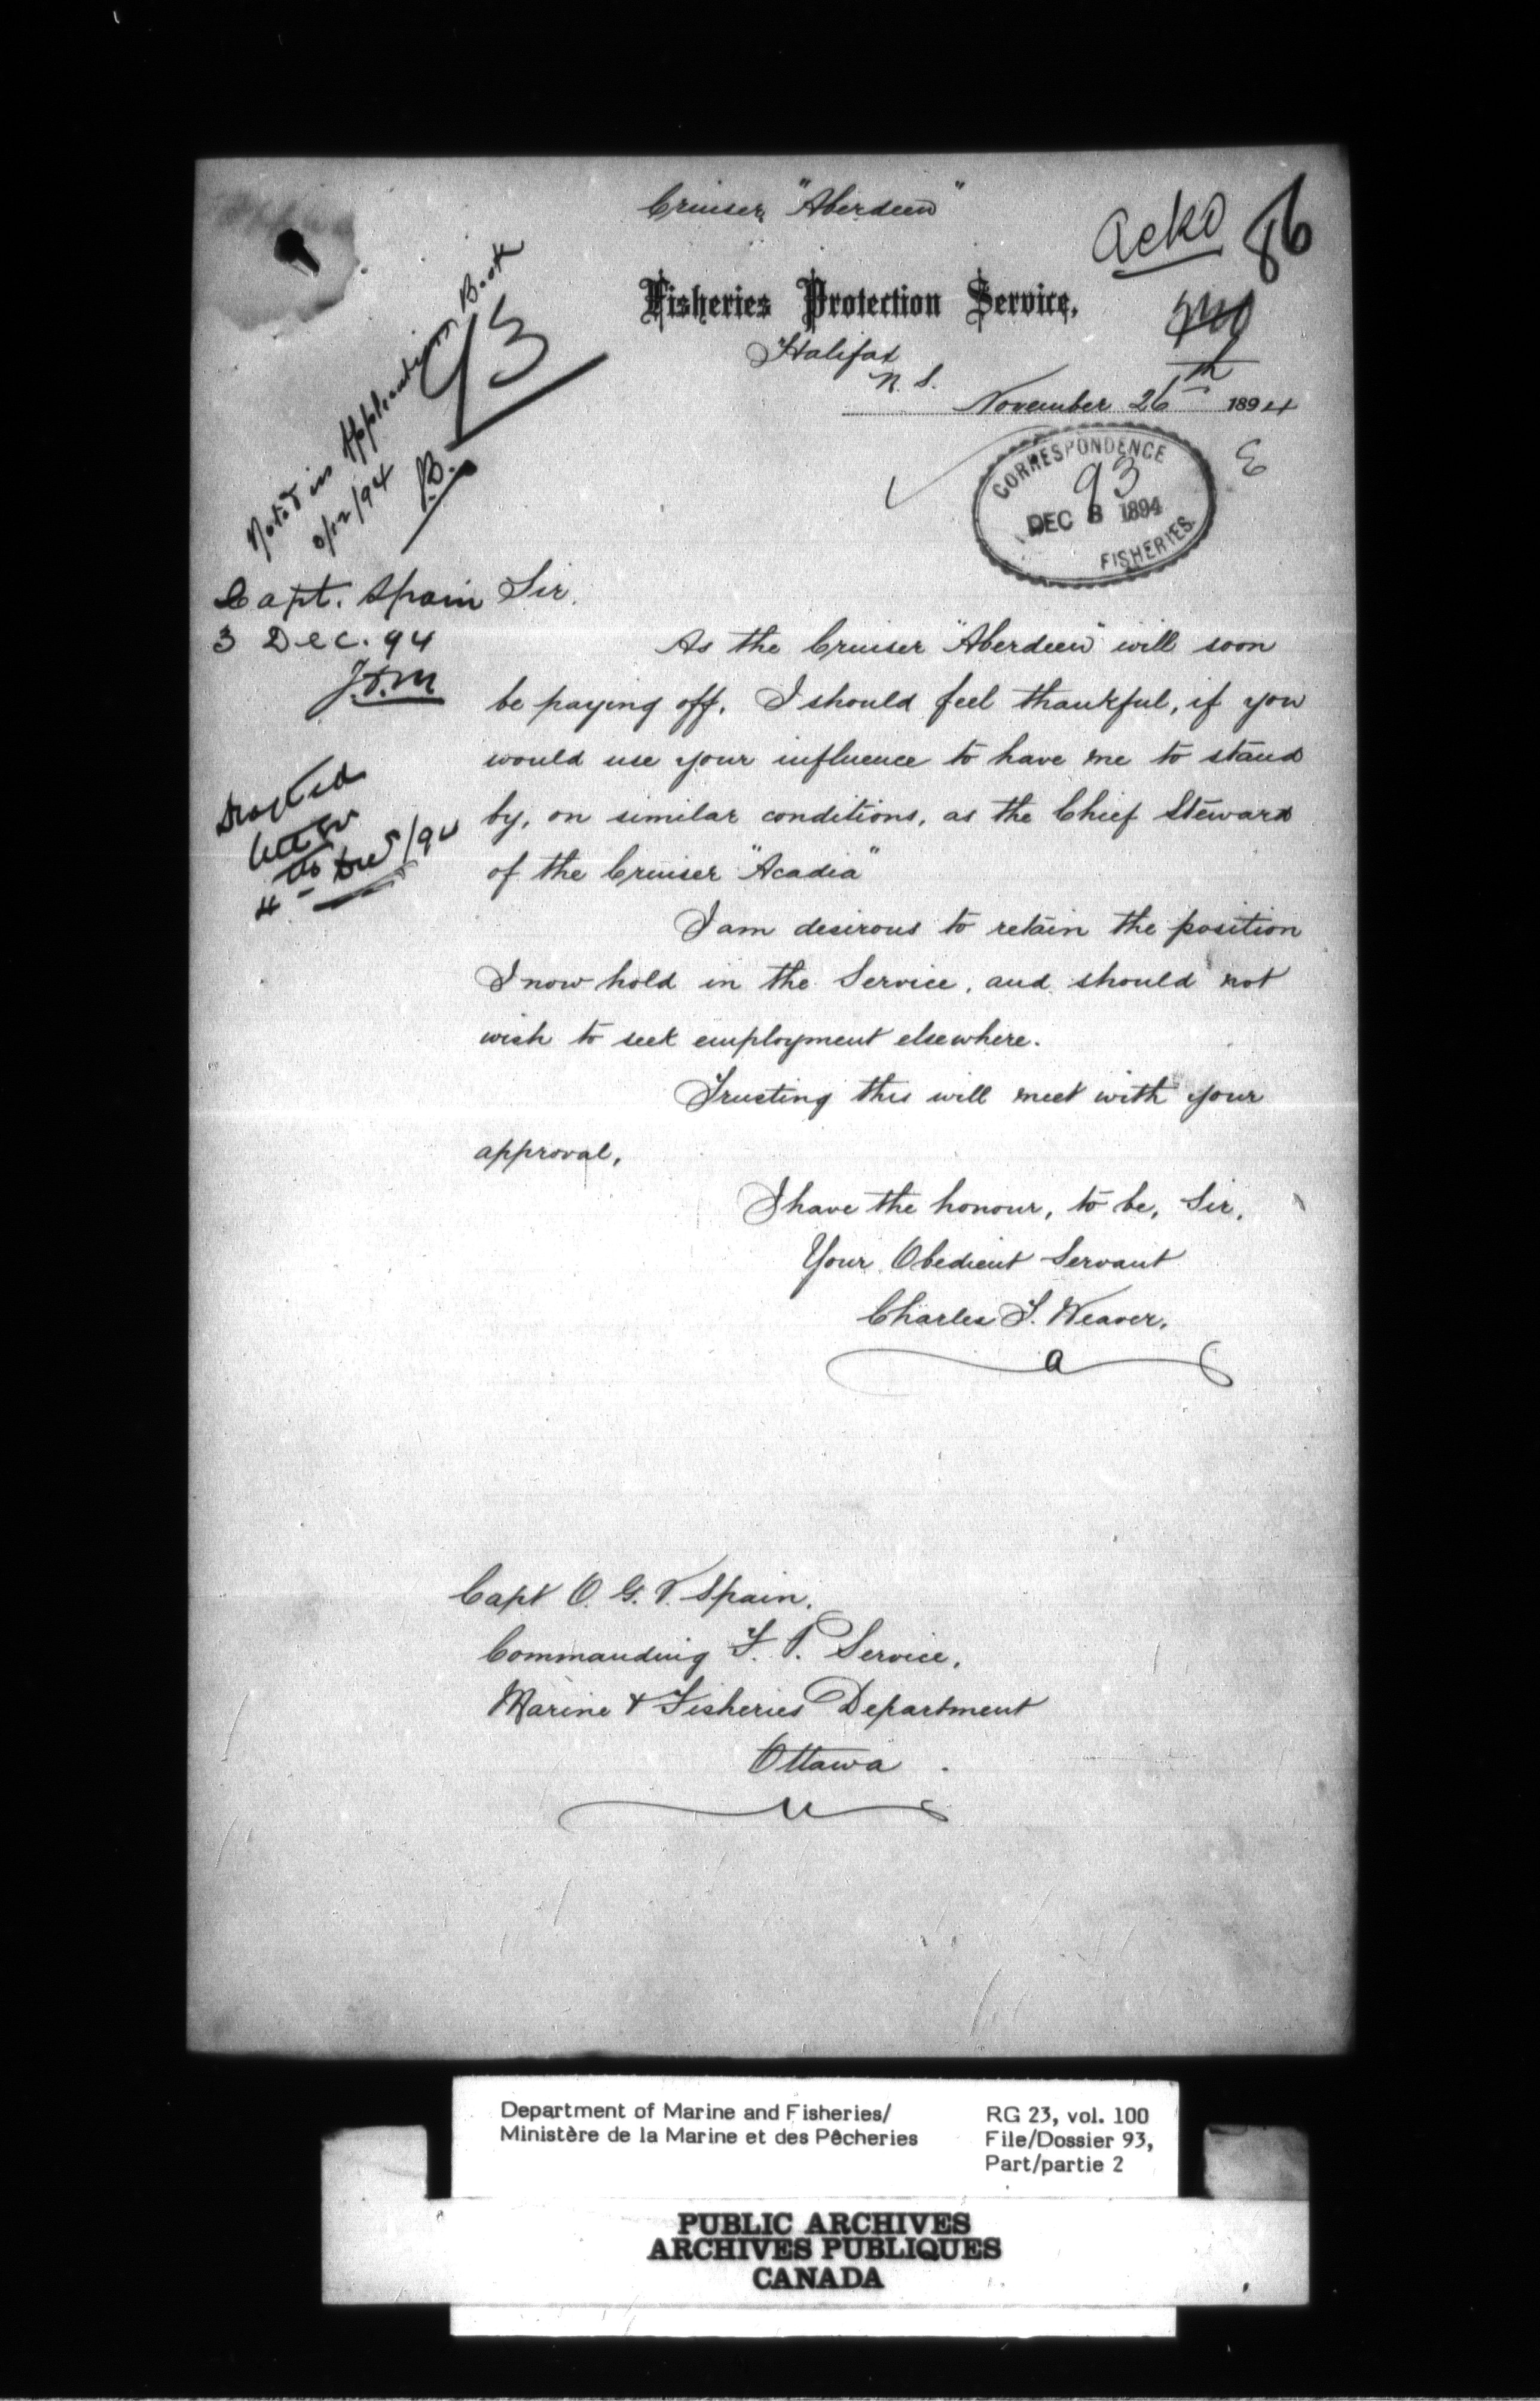 Cruiser "Aberdeen"
Ackd 86
Fisheries Protection Service,
Halifax
N. S.
November 26th 1894
Noted in Application Book
93
/12/94 B.
CORRESPONDENCE
93
DEC 3 1894
FISHERIES
Capt. Spain
3 Dec. 94
J.F.M
Drafted
letter
4th Dec/94
Sir.
As the Cruiser "Aberdeen" will soon
be paying off, I should feel thankful, if you
would use your influence to have me to stand
by, on similar conditions, as the Chief Steward
of the Cruiser "Acadia"
I am desirous to retain the position
I now hold in the Service, and should not
wish to seek employment elsewhere.
Trusting this will meet with your
approval,
I have the honour, to be, Sir,
Your Obedient Servant
Charles T. Weaver,
Capt O. G. V. Spain.
Commanding F. P. Service,
Marine & Fisheries Department
Ottawa.
Department of Marine and Fisheries/
Ministère de la Marine et des Pêcheries
RG 23, vol. 100
File/Dossier 93,
Part/partie 2
PUBLIC ARCHIVES
ARCHIVES PUBLIQUES
CANADA